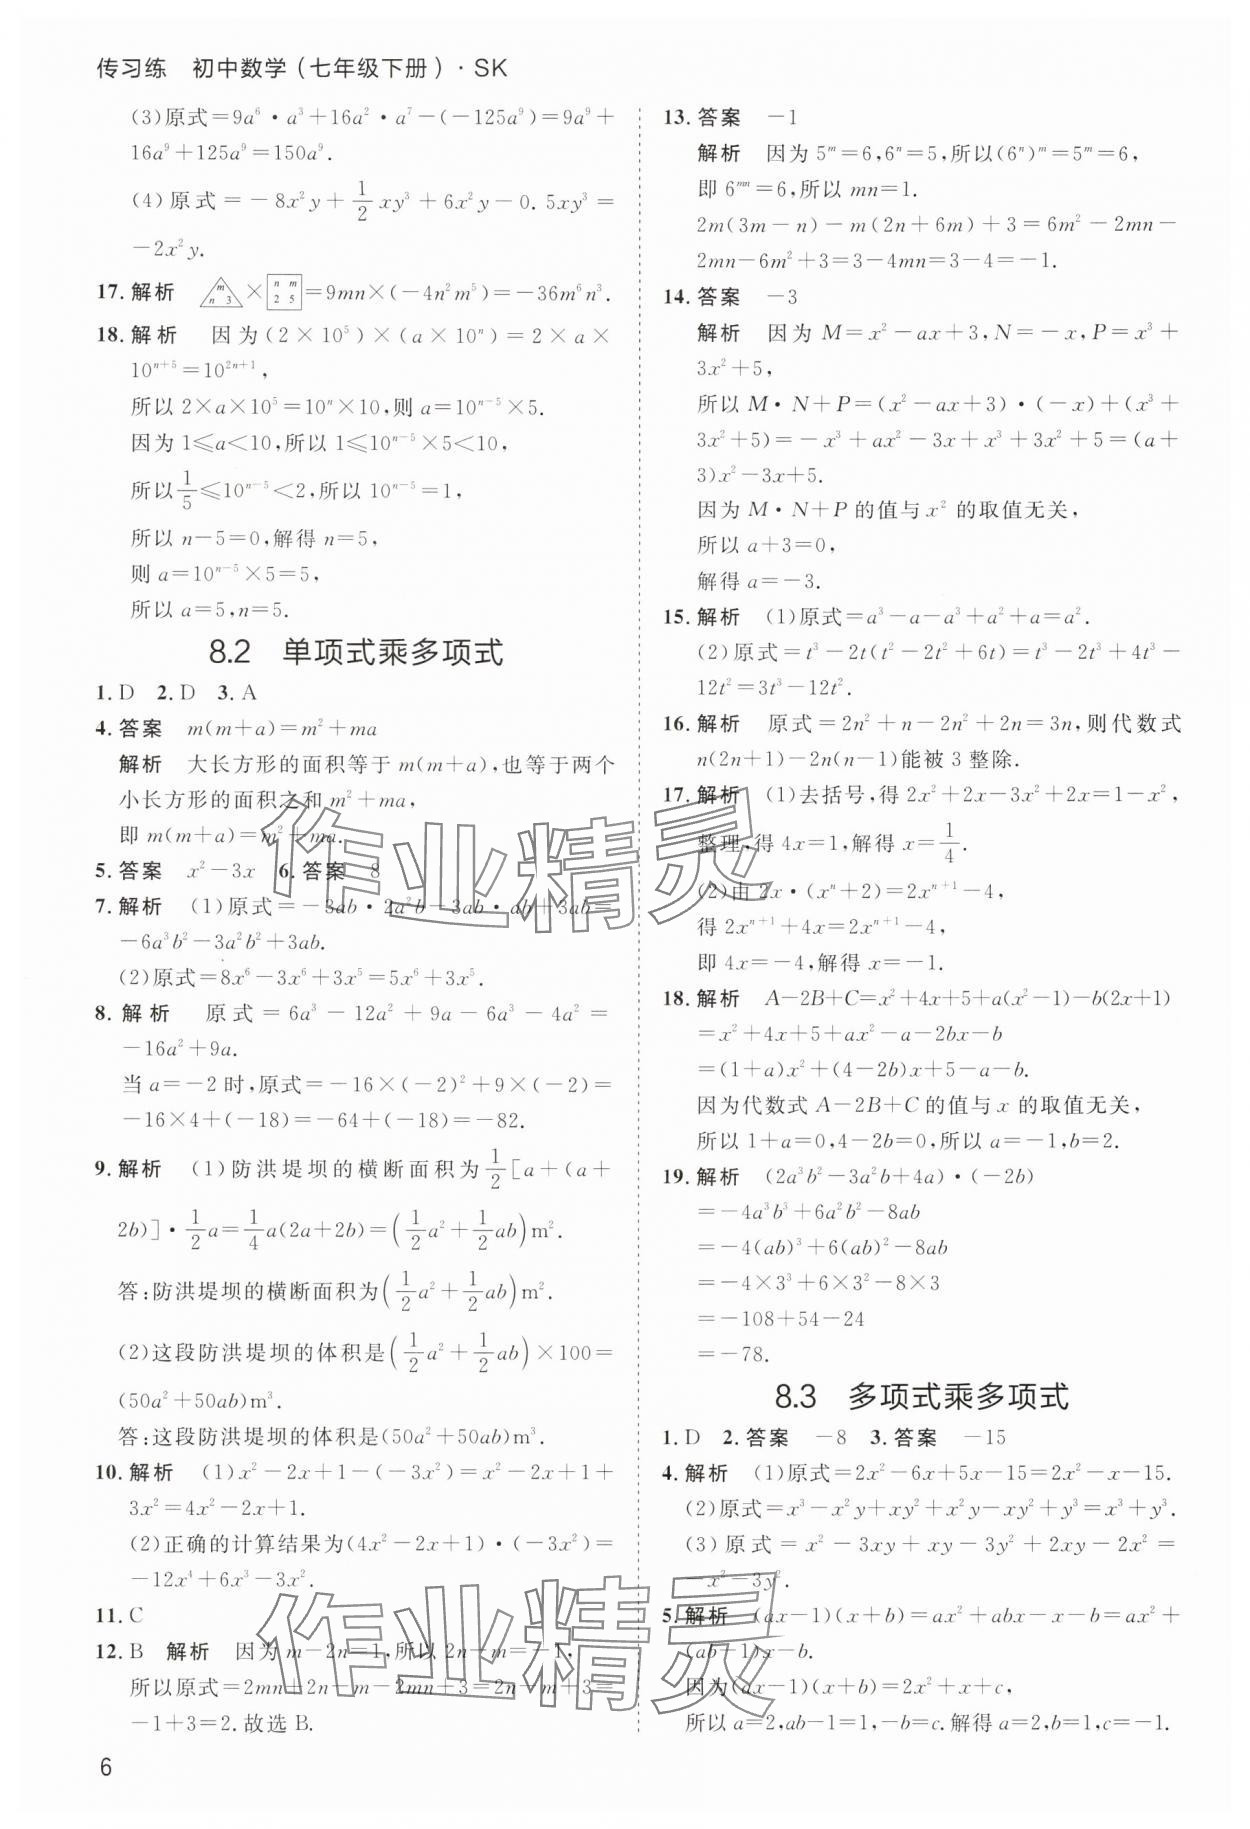 传习练 初中数学(七年级下册)·SK
(3)原式=9a⁶·a³+16a²·a⁷-(-125a⁹)=9a⁹+
16a⁹+125a⁹=150a⁹.
(4)原式=-8x²y+1/2xy³+6x²y-0.5xy³=
-2x²y.
17.解析 △(m n 3)×□(n m 2 5)=9mn×(-4n²m⁵)=-36m⁶n³.
18.解析 因为(2×10⁵)×(a×10ⁿ)=2×a×
10ⁿ⁺⁵=10²ⁿ⁺¹,
所以2×a×10⁵=10ⁿ×10,则a=10ⁿ⁻⁵×5.
因为1≤a<10,所以1≤10ⁿ⁻⁵×5<10,
所以1/5≤10ⁿ⁻⁵<2,所以10ⁿ⁻⁵=1,
所以n-5=0,解得n=5,
则a=10ⁿ⁻⁵×5=5,
所以a=5,n=5.
8.2 单项式乘多项式
1.D 2.D 3.A
4.答案 m(m+a)=m²+ma
解析 大长方形的面积等于m(m+a),也等于两个
小长方形的面积之和m²+ma,
即m(m+a)=m²+ma.
5.答案 x²-3x 6.答案 8
7.解析 (1)原式=-3ab·2a²b-3ab·ab+3ab=
-6a³b²-3a²b²+3ab.
(2)原式=8x⁶-3x⁶+3x³=5x⁶+3x³.
8.解析 原式=6a³-12a²+9a-6a³-4a²=
-16a²+9a.
当a=-2时,原式=-16×(-2)²+9×(-2)=
-16×4+(-18)=-64+(-18)=-82.
9.解析 (1)防洪堤坝的横断面积为1/2[a+(a+
2b)]·1/2a=1/4a(2a+2b)=(1/2a²+1/2ab)m².
答:防洪堤坝的横断面积为(1/2a²+1/2ab)m².
(2)这段防洪堤坝的体积是(1/2a²+1/2ab)×100=
(50a²+50ab)m³.
答:这段防洪堤坝的体积是(50a²+50ab)m³.
10.解析 (1)x²-2x+1-(-3x²)=x²-2x+1+
3x²=4x²-2x+1.
(2)正确的计算结果为(4x²-2x+1)·(-3x²)=
-12x⁴+6x³-3x².
11.C
12.B 解析 因为m-2n=1,所以2n-m=-1,
所以原式=2mn+2n-m-2mn+3=2n-m+3=
-1+3=2.故选B.
6
13.答案 -1
解析 因为5ᵐ=6,6ⁿ=5,所以(6ⁿ)ᵐ=5ᵐ=6,
即6ᵐⁿ=6,所以mn=1.
2m(3m-n)-m(2n+6m)+3=6m²-2mn-
2mn-6m²+3=3-4mn=3-4=-1.
14.答案 -3
解析 因为M=x²-ax+3,N=-x,P=x³+
3x²+5,
所以M·N+P=(x²-ax+3)·(-x)+(x³+
3x²+5)=-x³+ax²-3x+x³+3x²+5=(a+
3)x²-3x+5.
因为M·N+P的值与x²的取值无关,
所以a+3=0,
解得a=-3.
15.解析 (1)原式=a³-a-a³+a²+a=a².
(2)原式=t³-2t(t²-2t²+6t)=t³-2t³+4t³-
12t²=3t³-12t².
16.解析 原式=2n²+n-2n²+2n=3n,则代数式
n(2n+1)-2n(n-1)能被3整除.
17.解析 (1)去括号,得2x²+2x-3x²+2x=1-x²,
整理,得4x=1,解得x=1/4.
(2)由2x·(xⁿ+2)=2xⁿ⁺¹-4,
得2xⁿ⁺¹+4x=2xⁿ⁺¹-4,
即4x=-4,解得x=-1.
18.解析 A-2B+C=x²+4x+5+a(x²-1)-b(2x+1)
=x²+4x+5+ax²-a-2bx-b
=(1+a)x²+(4-2b)x+5-a-b.
因为代数式A-2B+C的值与x的取值无关,
所以1+a=0,4-2b=0,所以a=-1,b=2.
19.解析 (2a³b²-3a²b+4a)·(-2b)
=-4a³b³+6a²b²-8ab
=-4(ab)³+6(ab)²-8ab
=-4×3³+6×3²-8×3
=-108+54-24
=-78.
8.3 多项式乘多项式
1.D 2.答案 -8 3.答案 -15
4.解析 (1)原式=2x²-6x+5x-15=2x²-x-15.
(2)原式=x³-x²y+xy²+x²y-xy²+y³=x³+y³.
(3)原式=x²-3xy+xy-3y²+2xy-2x²=
-x²-3y².
5.解析 (ax-1)(x+b)=ax²+abx-x-b=ax²+
(ab-1)x-b.
因为(ax-1)(x+b)=2x²+x+c,
所以a=2,ab-1=1,-b=c.解得a=2,b=1,c=-1.
作业精灵
作业精灵